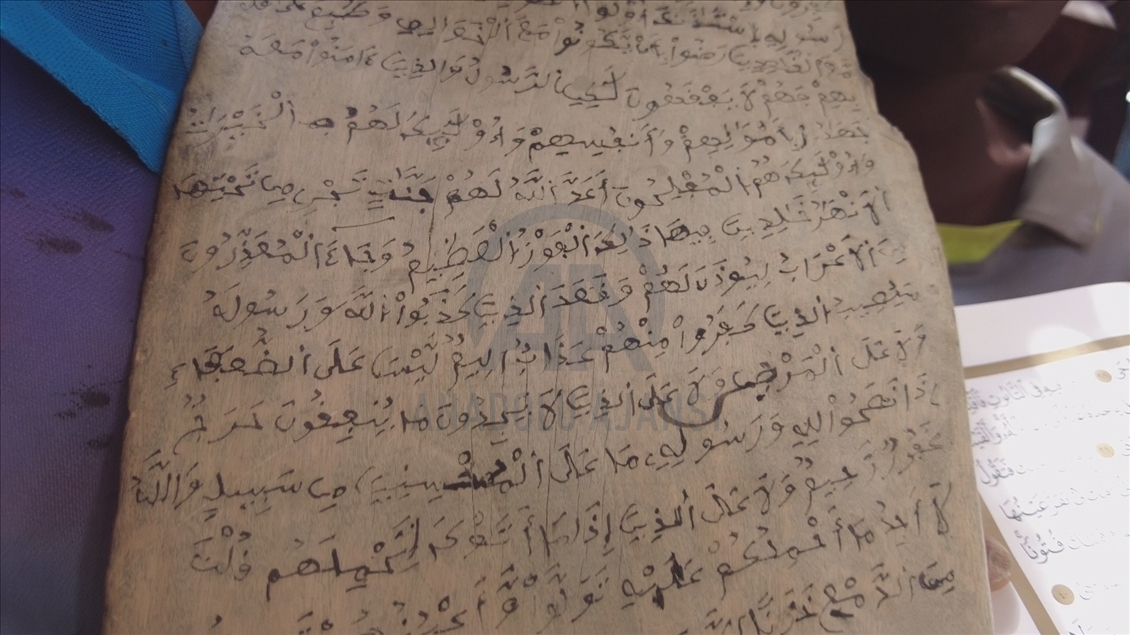 رسوله استئذنك أولوا
مع القعدين رضوا بأن يكونوا مع الخوالف وطبع على قلو
بهم فهم لا يفقهون لكن الرسول والذين ءامنوا معه
جهدوا بأموالهم وأنفسهم وأولئك لهم الخيرات
وأولئك هم المفلحون أعد الله لهم جنات تجرى من تحتها
الأنهر خلدين فيها ذلك الفوز العظيم وجاء المعذرون
من الأعراب ليؤذن لهم وقعد الذين كذبوا الله ورسوله
سيصيب الذين كفروا منهم عذاب أليم ليس على الضعفاء
ولا على المرضى ولا على الذين لا يجدون ما ينفقون حرج
إذا نصحوا لله ورسوله ما على المحسنين من سبيل والله
غفور رحيم ولا على الذين إذا ما أتوك لتحملهم قلت
لا أجد ما أحملكم عليه تولوا وأعينهم
من الدمع حزنا
AA
ANADOLU AJANSI